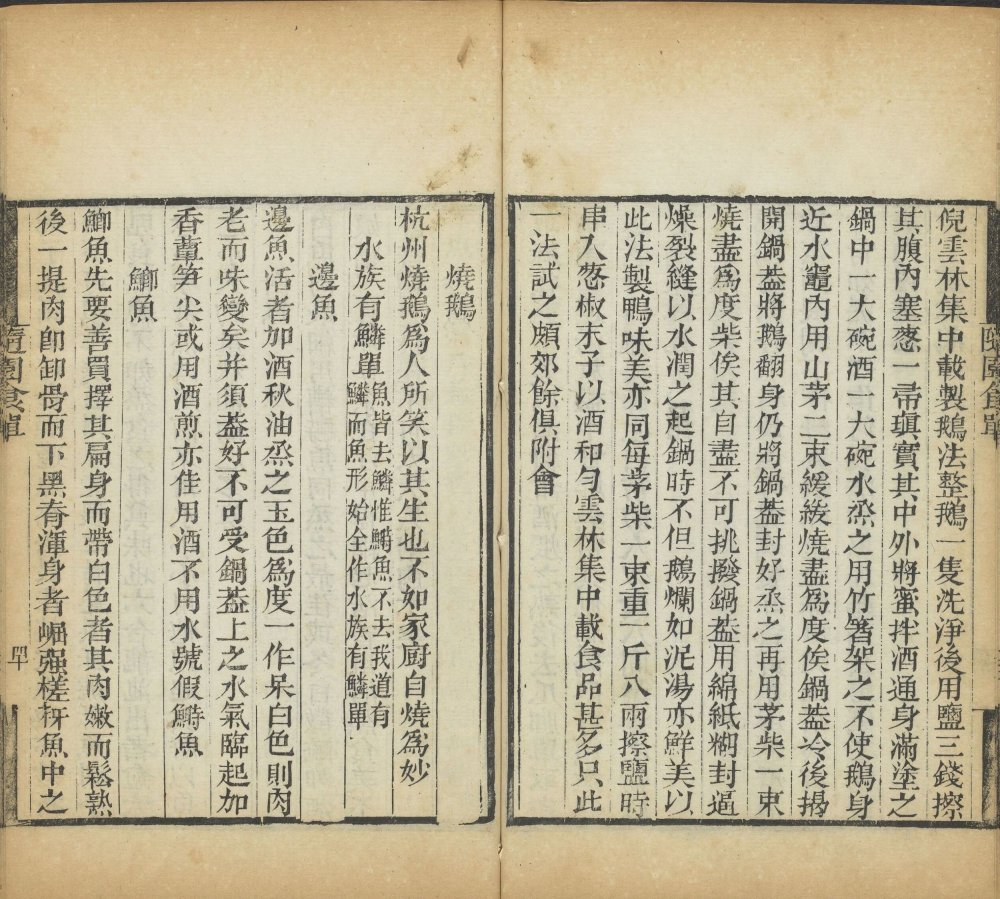 倪雲林集中載製鵝法整鵝一隻洗淨後用鹽三錢擦
其腹內塞蔥一帚塡實其中外將蜜拌酒通身滿塗之
鍋中一大碗酒一大碗水烝之用竹箸架之不使鵝身
近水竈內用山茅二束緩緩燒盡爲度俟鍋葢冷後揭
開鍋葢將鵝翻身仍將鍋葢封好烝之再用茅柴一束
燒盡爲度柴俟其自盡不可挑撥鍋葢用綿紙糊封逼
燥裂縫以水潤之起鍋時不但鵝爛如泥湯亦鮮美以
此法製鴨味美亦同每茅柴一束重一斤八兩擦鹽時
串入蔥椒末子以酒和勻雲林集中載食品甚多只此
一法試之頗效餘俱附會
燒鵝
杭州燒鵝爲人所笑以其生也不如家厨自燒爲妙
水族有鱗單
魚皆去鱗惟鰣魚不去我道有
鱗而魚形始全作水族有鱗單
邊魚
邊魚活者加酒秋油烝之玉色爲度一作呆白色則肉
老而味變矣并須葢好不可受鍋葢上之水氣臨起加
香蕈笋尖或用酒煎亦佳用酒不用水號假鰣魚
鯽魚
鯽魚先要善買擇其扁身而帶白色者其肉嫩而鬆熟
後一提肉卽卸骨而下黑脊渾身者崛强槎枒魚中之
隨園食單
單
隨園食單